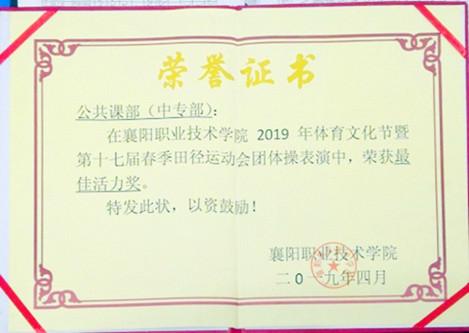 荣誉证书
公共课部（中专部）：
在襄阳职业技术学院 2019 年体育文化节暨
第十七届春季田径运动会团体操表演中，荣获最
佳活力奖。
特发此状，以资鼓励！
襄阳职业技术学院
二０一九年四月